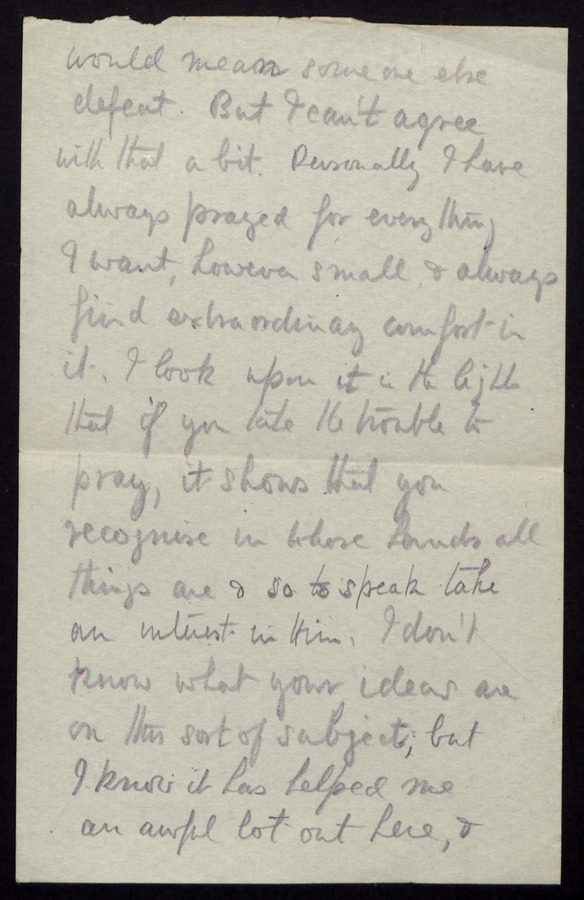 would mean some one else
defeat. But I can't agree
with that a bit. Personally I have
always prayed for every thing
I want, however small, & always
find extraordinary comfort in
it. I look upon it in the light
that if you take the trouble to
pray, it shows that you
recognise in whose hands all
things are & so to speak take
an interest in Him. I don't
know what your ideas are
on this sort of subject; but
I know it has helped me
an awful lot out here, &